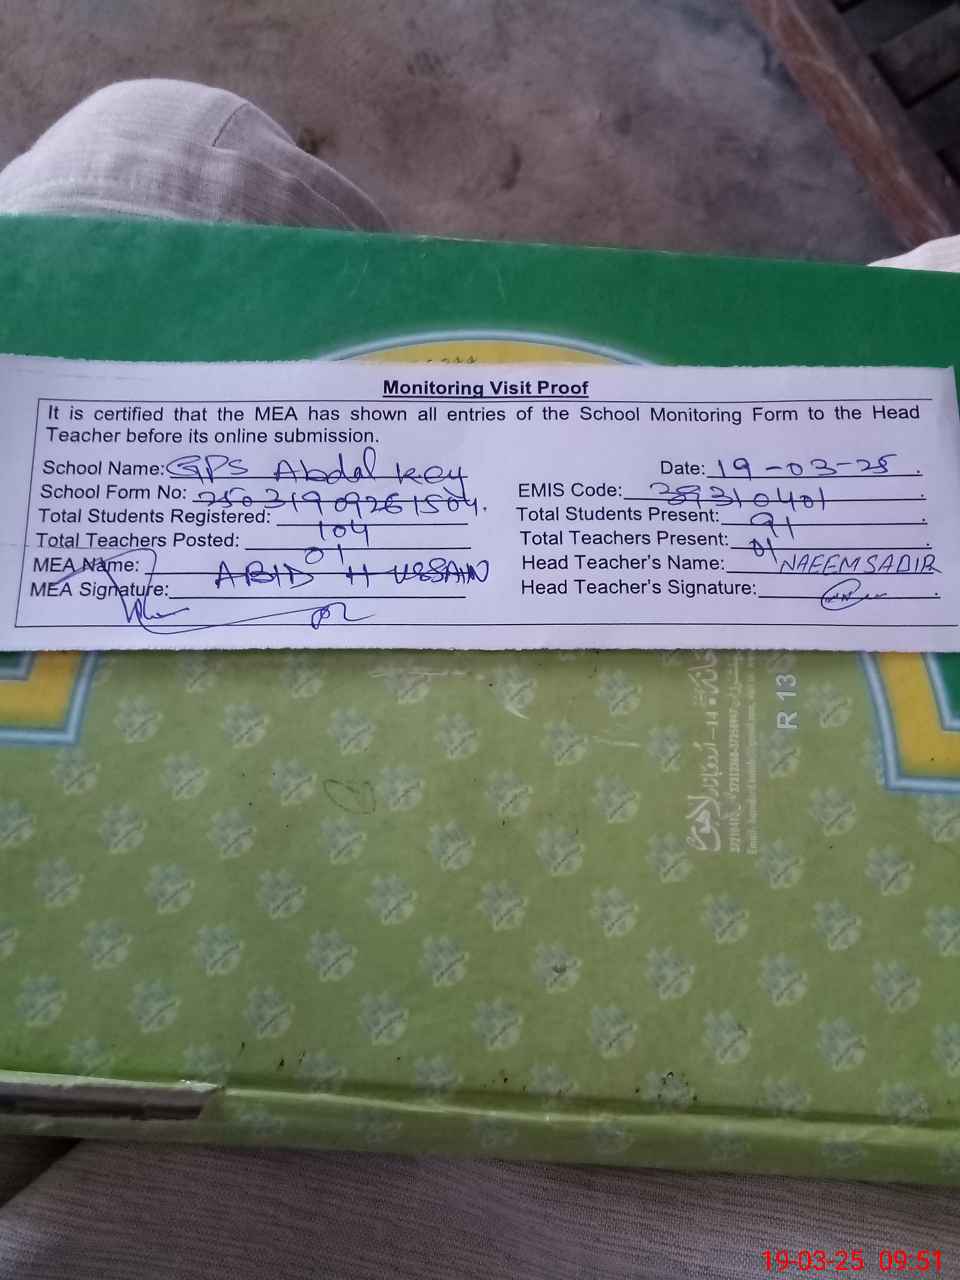 Monitoring Visit Proof
It is certified that the MEA has shown all entries of the School Monitoring Form to the Head
Teacher before its online submission.
School Name: GPS Abdal Key Date: 19-03-25.
School Form No: 25031909261504. EMIS Code: 39310401
Total Students Registered: 104 Total Students Present: 91
Total Teachers Posted: 01 Total Teachers Present: 01
MEA Name: ABID HUSSAIN Head Teacher's Name: NAEEM SADIR
MEA Signature: Head Teacher's Signature:
R 13
19-03-25 09:51